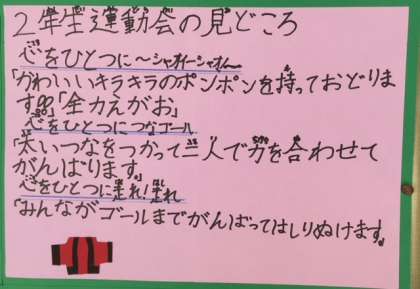 2年生運動会の見どころ
心をひとつに〜シャオイーシャオ〜
「かわいいキラキラのポンポンを持っておどりま
す。」「全力えがお」
心をひとつにつなゴール
「太いつなをつかって二人で力を合わせて
がんばります。」
心をひとつに走れ!走れ
「みんながゴールまでがんばってはしりぬけます。